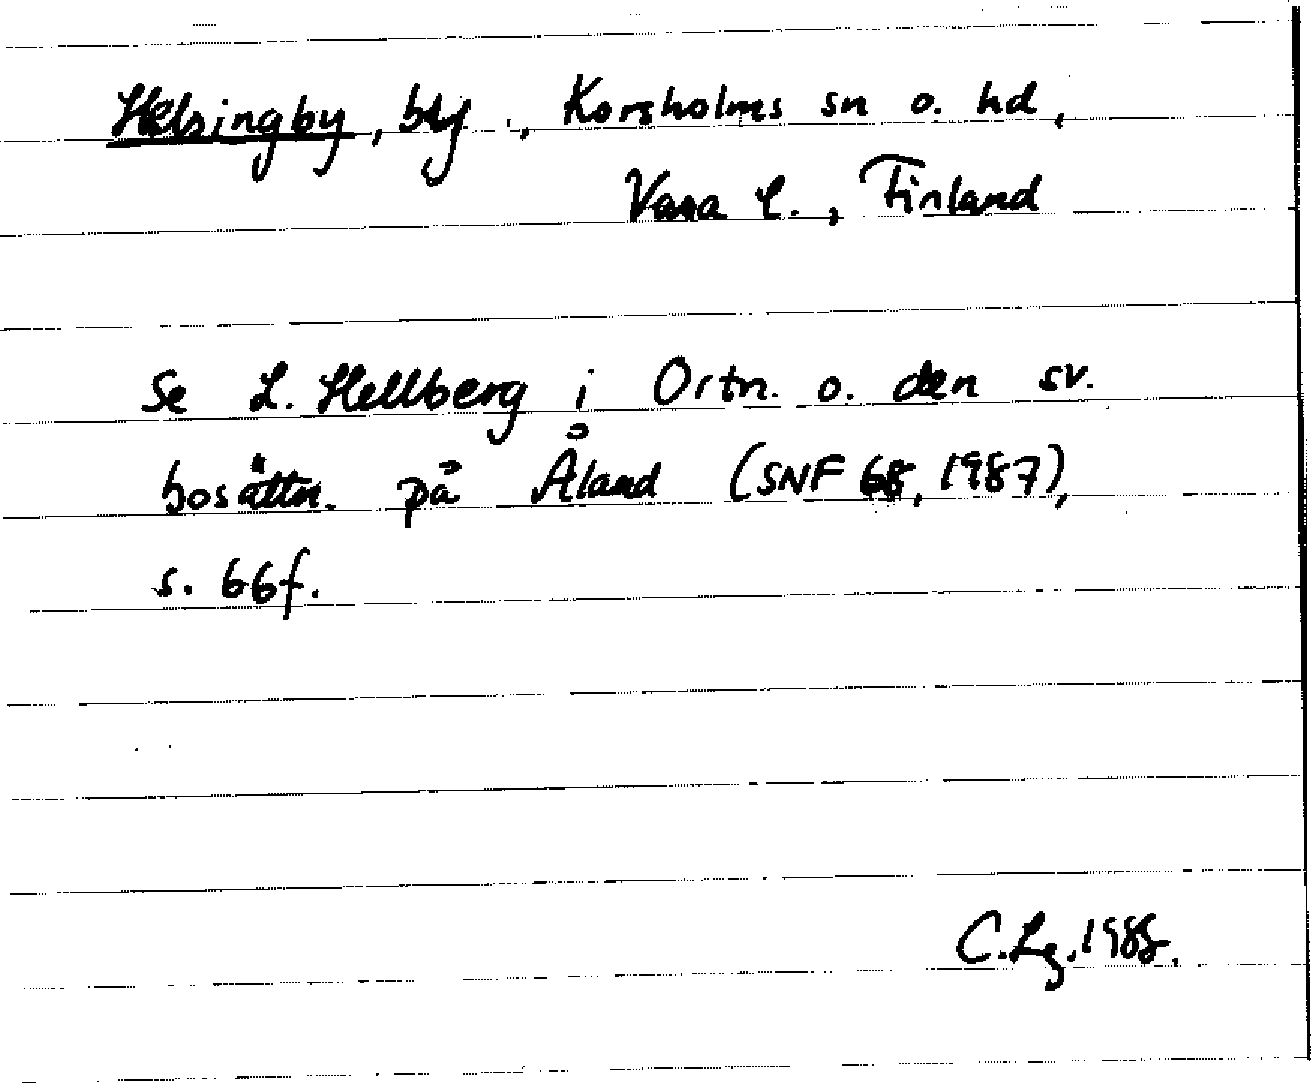 Helsingby, by ., Korsholms sn o. hd,
Vasa l., Finland
Se L. Hellberg i Ortn. o. den sv.
bosättn. på Åland (SNF 68, 1987),
s. 66f.
C.Lg. 1988.